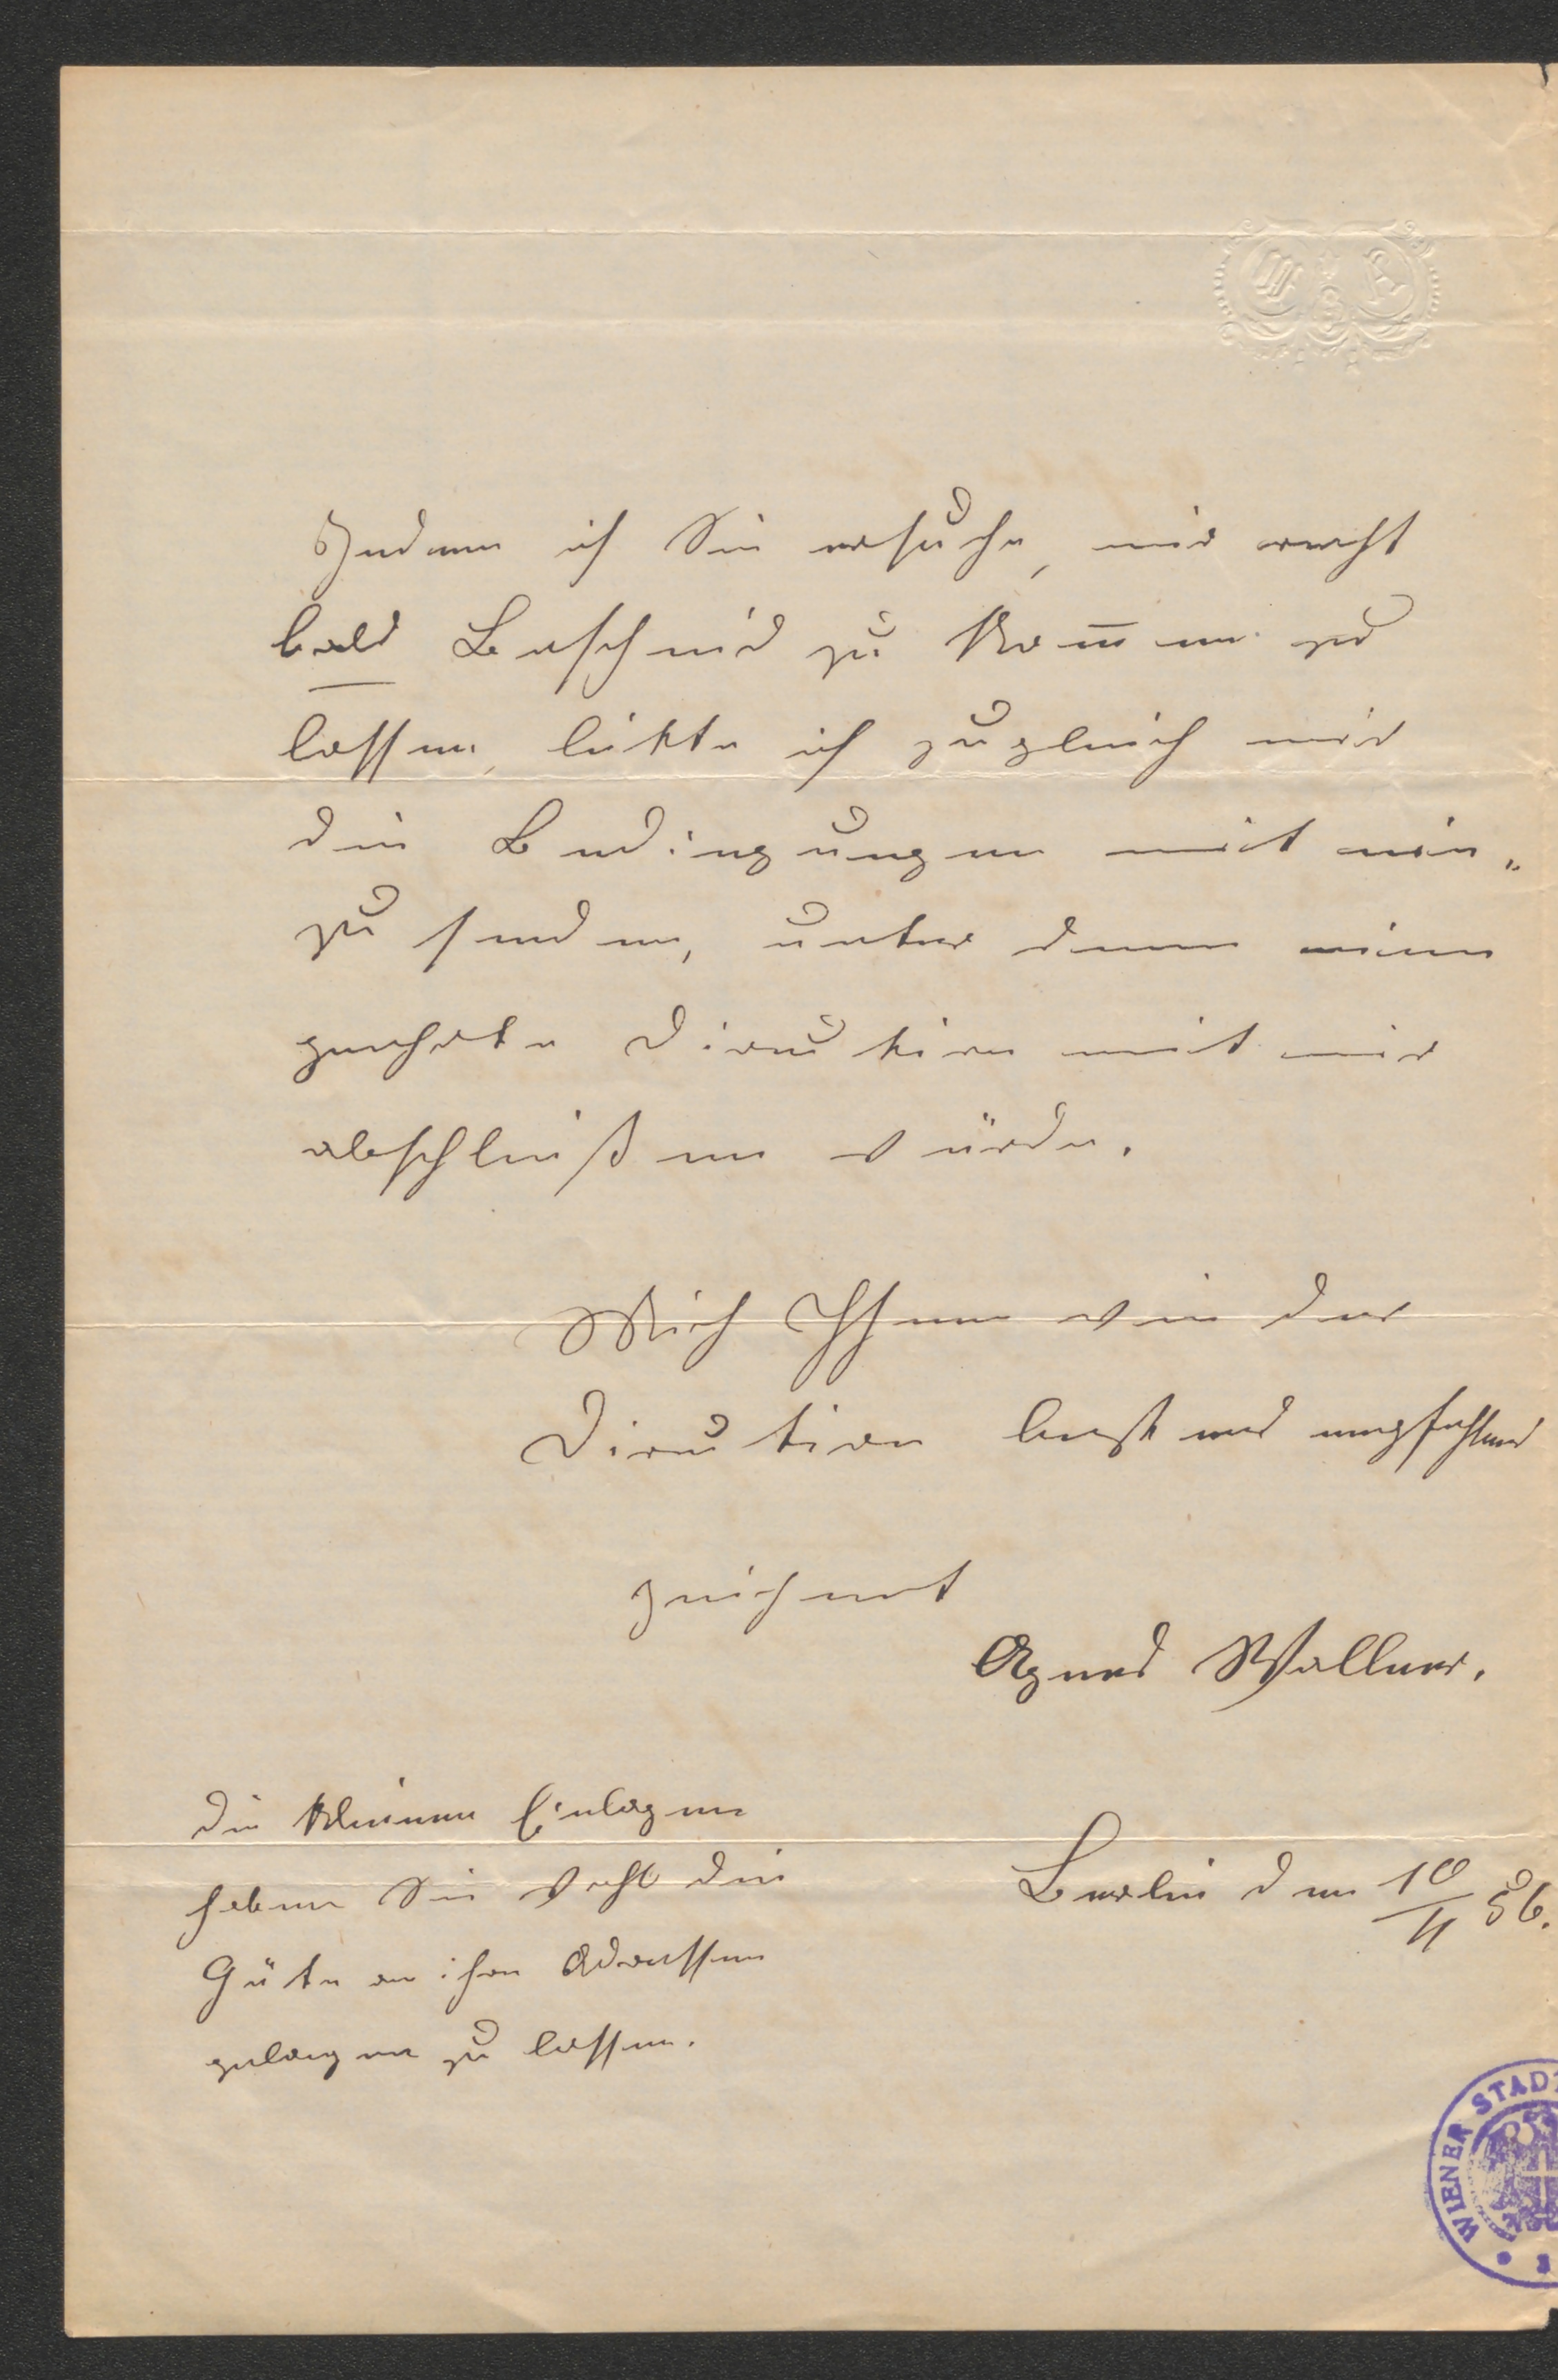 Indem ich Sie ersuche, mir recht
bald Bescheid zu kom̅en zu
lassen, bitte ich zugleich mir
die Bedingungen mit ein„
zu senden, unter denen eine
geehrte Direction mit mir
abschließen würde.
Mich Ihnen wie der
Direction bestens empfehlend
zeichnet
Agnes Wallner.
Die kleinen Einlagen
haben Sie wohl die
Güte an ihre Adressen
gelangen zu lassen.
Berlin den 10/11 86.
WIENER STADT